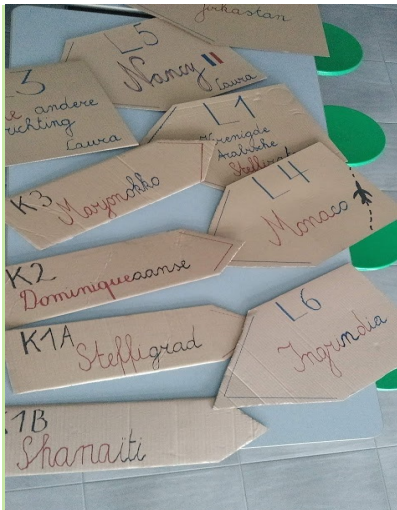 L5
Nancy
Laura
3
andere
richting
Laura
L1
Verenigde
Arabische
L4
Monaco
K3
Maryonokko
K2
Dominiqueaanse
K1A
Steffigrad
L6
Ingrindia
1B
Shanaiti